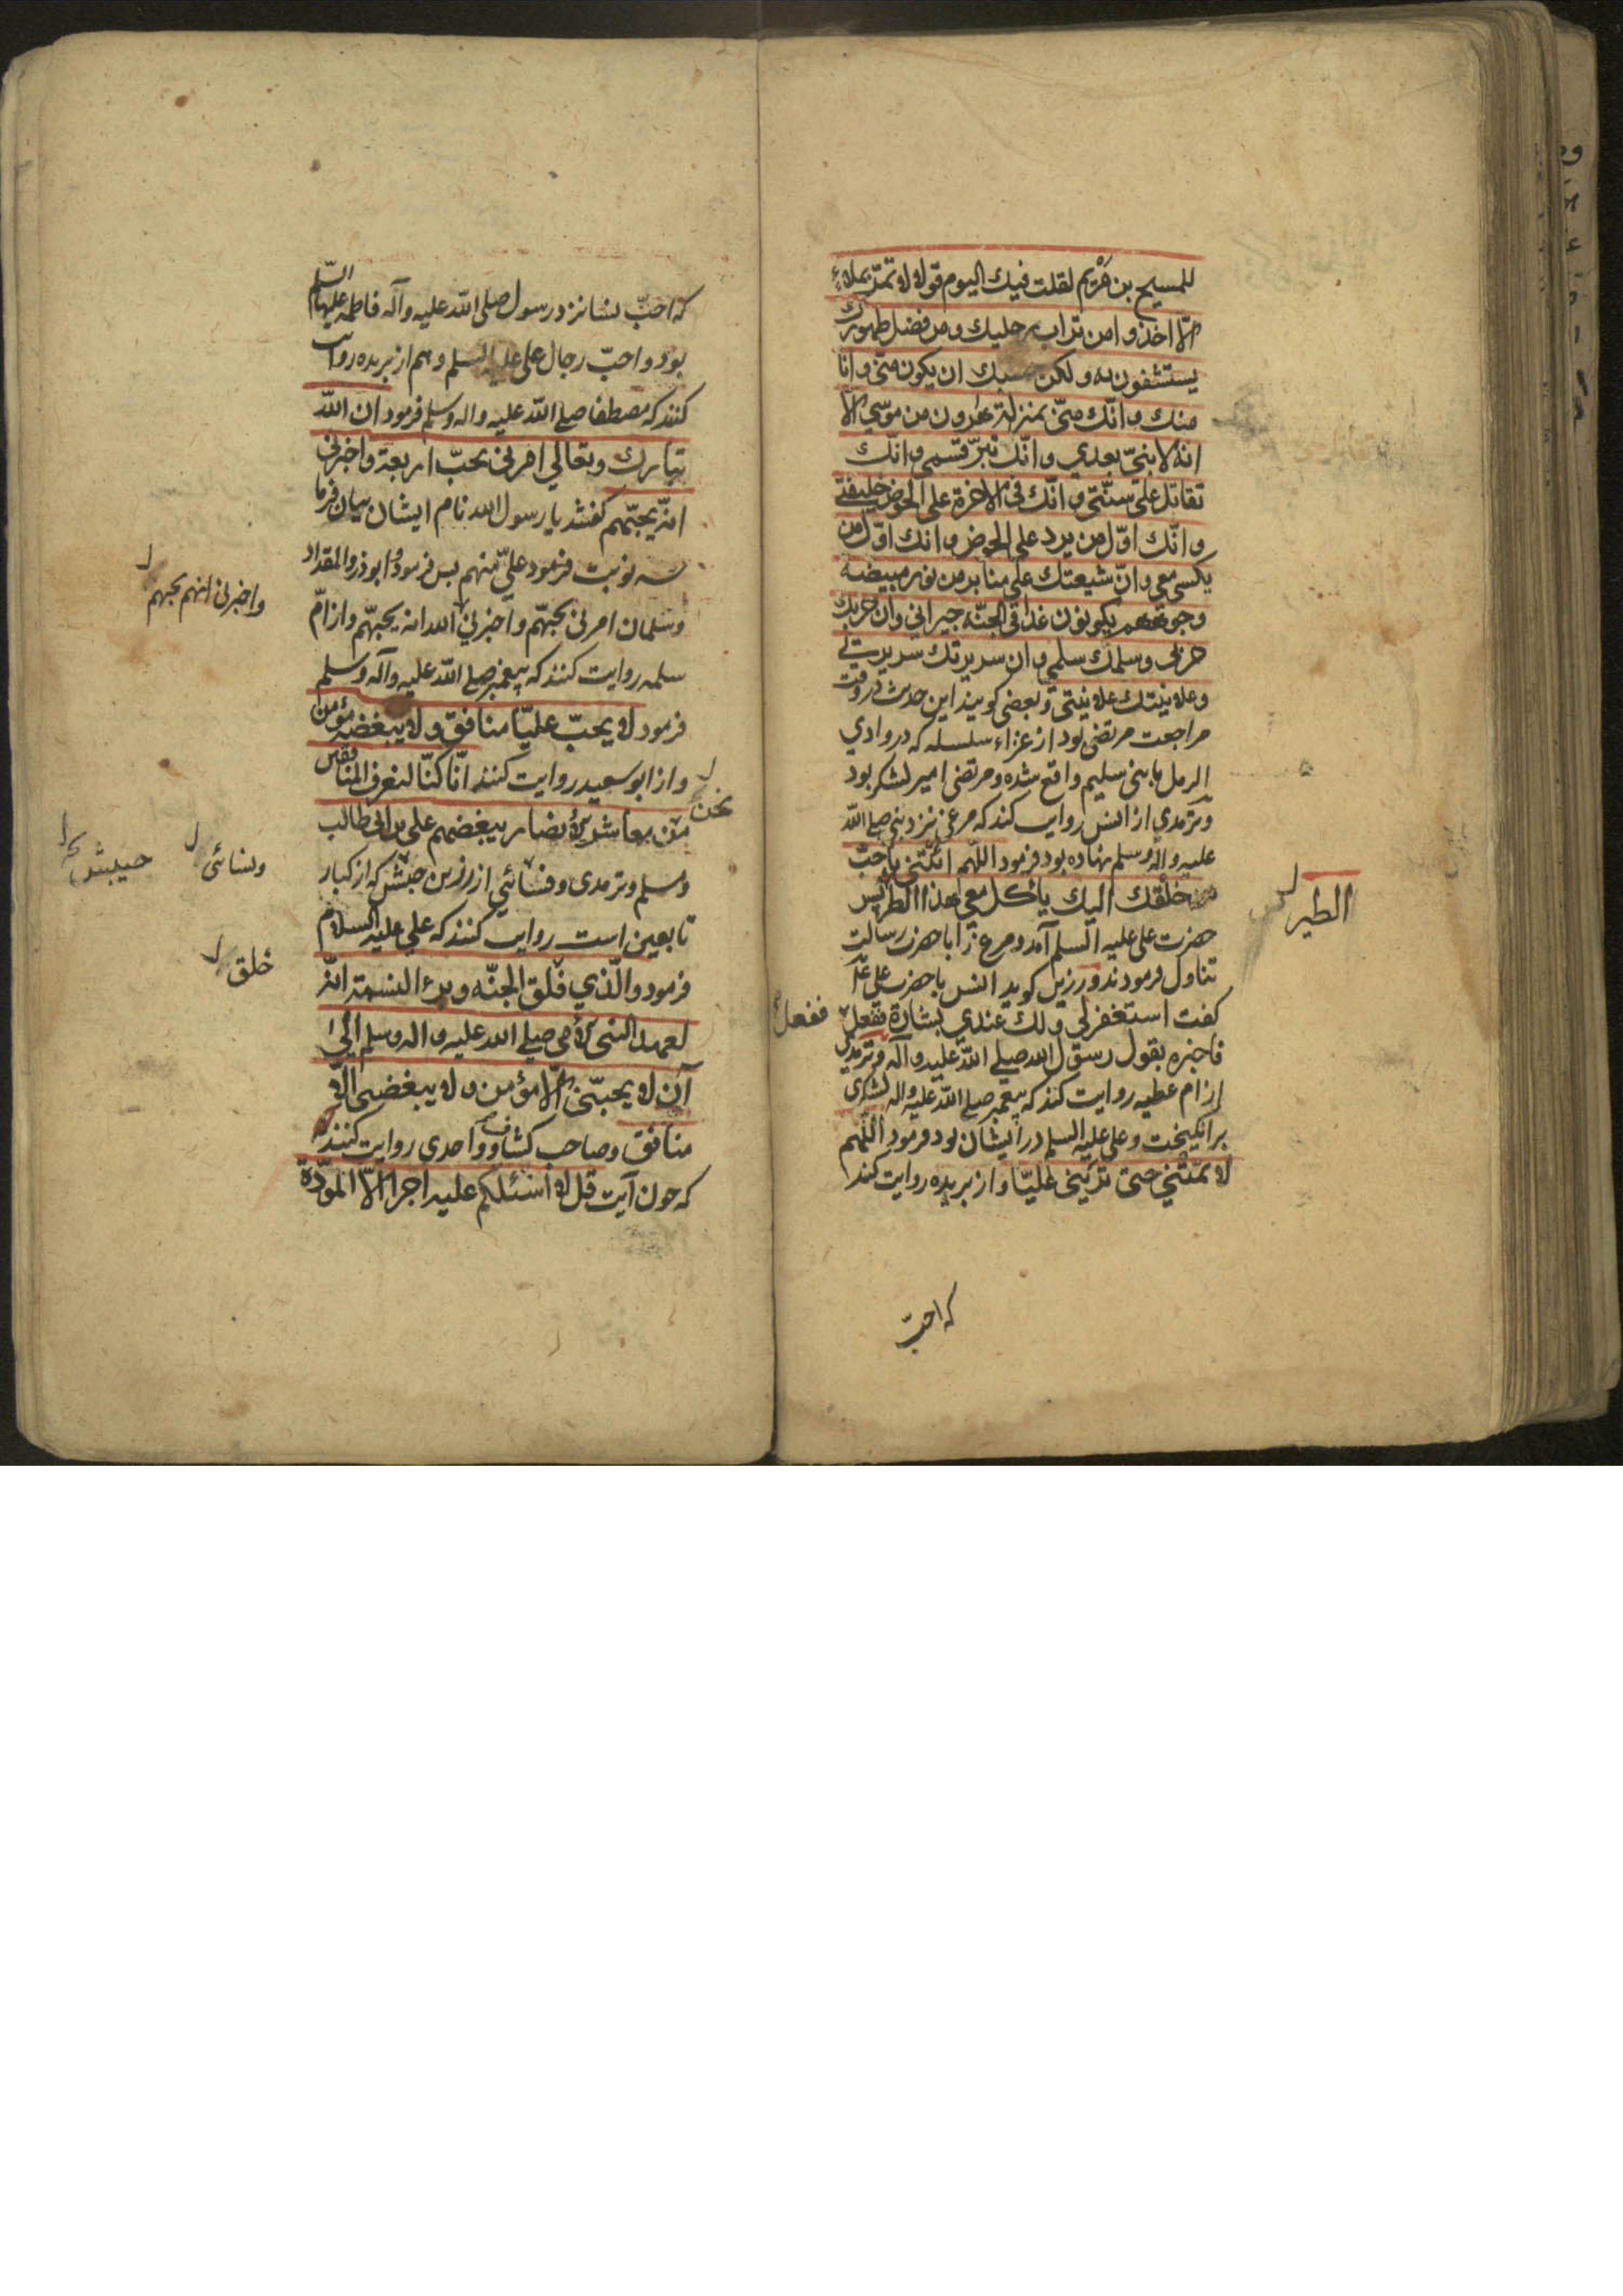 للمسيح بن مريم لقلت فيك اليوم قولا لا تمرّ بملاء
الّا اخذوا من تراب رجليك و من فضل طهورك
يستشفون به و لكن حسبك ان يكون منّي و انا
منك و انّك منّي بمنزلة هرون من موسي الا
انه لا نبيّ بعدي و انّك تبرّ قسمي و انّك
تقاتل علي سنّتي و انّك في الاخرة علي الحوض خليفتي
و انّك اوّل من يرد علي الحوض و انك اوّل من
يكسي معي و انّ شيعتك علي منابر من نور مبيضه
وجوههم يكونون غدا في الجنّه جيراني و ان حربك
حربي و سلمك سلمي و ان سريرتك سريرتي
و علانيتك علانيتي و بعضي كويند اين حديث در وقت
مراجعت مرتضي بود از غزاء سلسله كه در وادي
الرمل با بني سليم واقع شده و مرتضي امير لشكر بود
و ترمدي از انس روايت كند كه مرغي نزد نبي صلي اللّه
عليه و اله وسلم نهاده بود فرمود اللّهم ائتني باحبّ
خلقك اليك ياكل معي هذا الطير پس
الطير
حضرت علي عليه السلم آمد و مرغ را با حضرت رسالت
تناول فرمودند و رزين كويد انس با حضرت علي
كفت استغفر لي و لك عندي بشارة ففعل
ففعل
فاخبره بقول رسول اللّه صلي اللّه عليه و آله و ترمدي
از ام عطيه روايت كند كه پيغمبر صلي اللّه عليه و اله لشكري
برانكيخت و علي عليه السلم در ايشان بود فرمود اللّهم
لا تمتني حتي تريني عليّا و از بريده روايت كند
كه احبّ
كه احبّ نسا نزد رسول صلي اللّه عليه و آله فاطمه عليها السّلم
بود و احبّ رجال علي عليه السلم و هم از بريده روايت
كنند كه مصطفا صلي اللّه عليه و اله و سلم فرمود ان اللّه
تبارك و تعالي امرني بحبّ اربعة و اخبرني
انّه يحبّهم كفتند يا رسول اللّه نام ايشان بيان فرما
سه نوبت فرمود عليّ منهم پس فرمود و ابوذر و المقداد
و سلمان امرني بحبّهم و اخبرني اللّه انه يحبّهم و از امّ
و اخبرني انهم يحبهم
سلمه روايت كنند كه پيغمبر صلي اللّه عليه و آله و سلم
فرمود لا يحبّ عليّا منافق و لا يبغضه مؤمن
و از ابو سعيد روايت كنند انّا كنّا لنعرف المنافقين
نحن
معاشر الانصار ببغضهم علي بن ابي طالب
و مسلم و ترمدي و نسائي از رزين حبيش كه از كبار
و نسائي
حبيش
تابعين است روايت كنند كه علي عليه السلام
فرمود و الّذي فلق الجنّه و برء النسمة انّه
خلق
لعهد النبي الامي صلي اللّه عليه و اله و سلم الي
ان لا يحبّني الّا مؤمن و لا يبغضني الّا
منافق و صاحب كشاف و واحدي روايت كنند
كه چون آيت قل لا اسئلكم عليه اجرا الّا المودّة